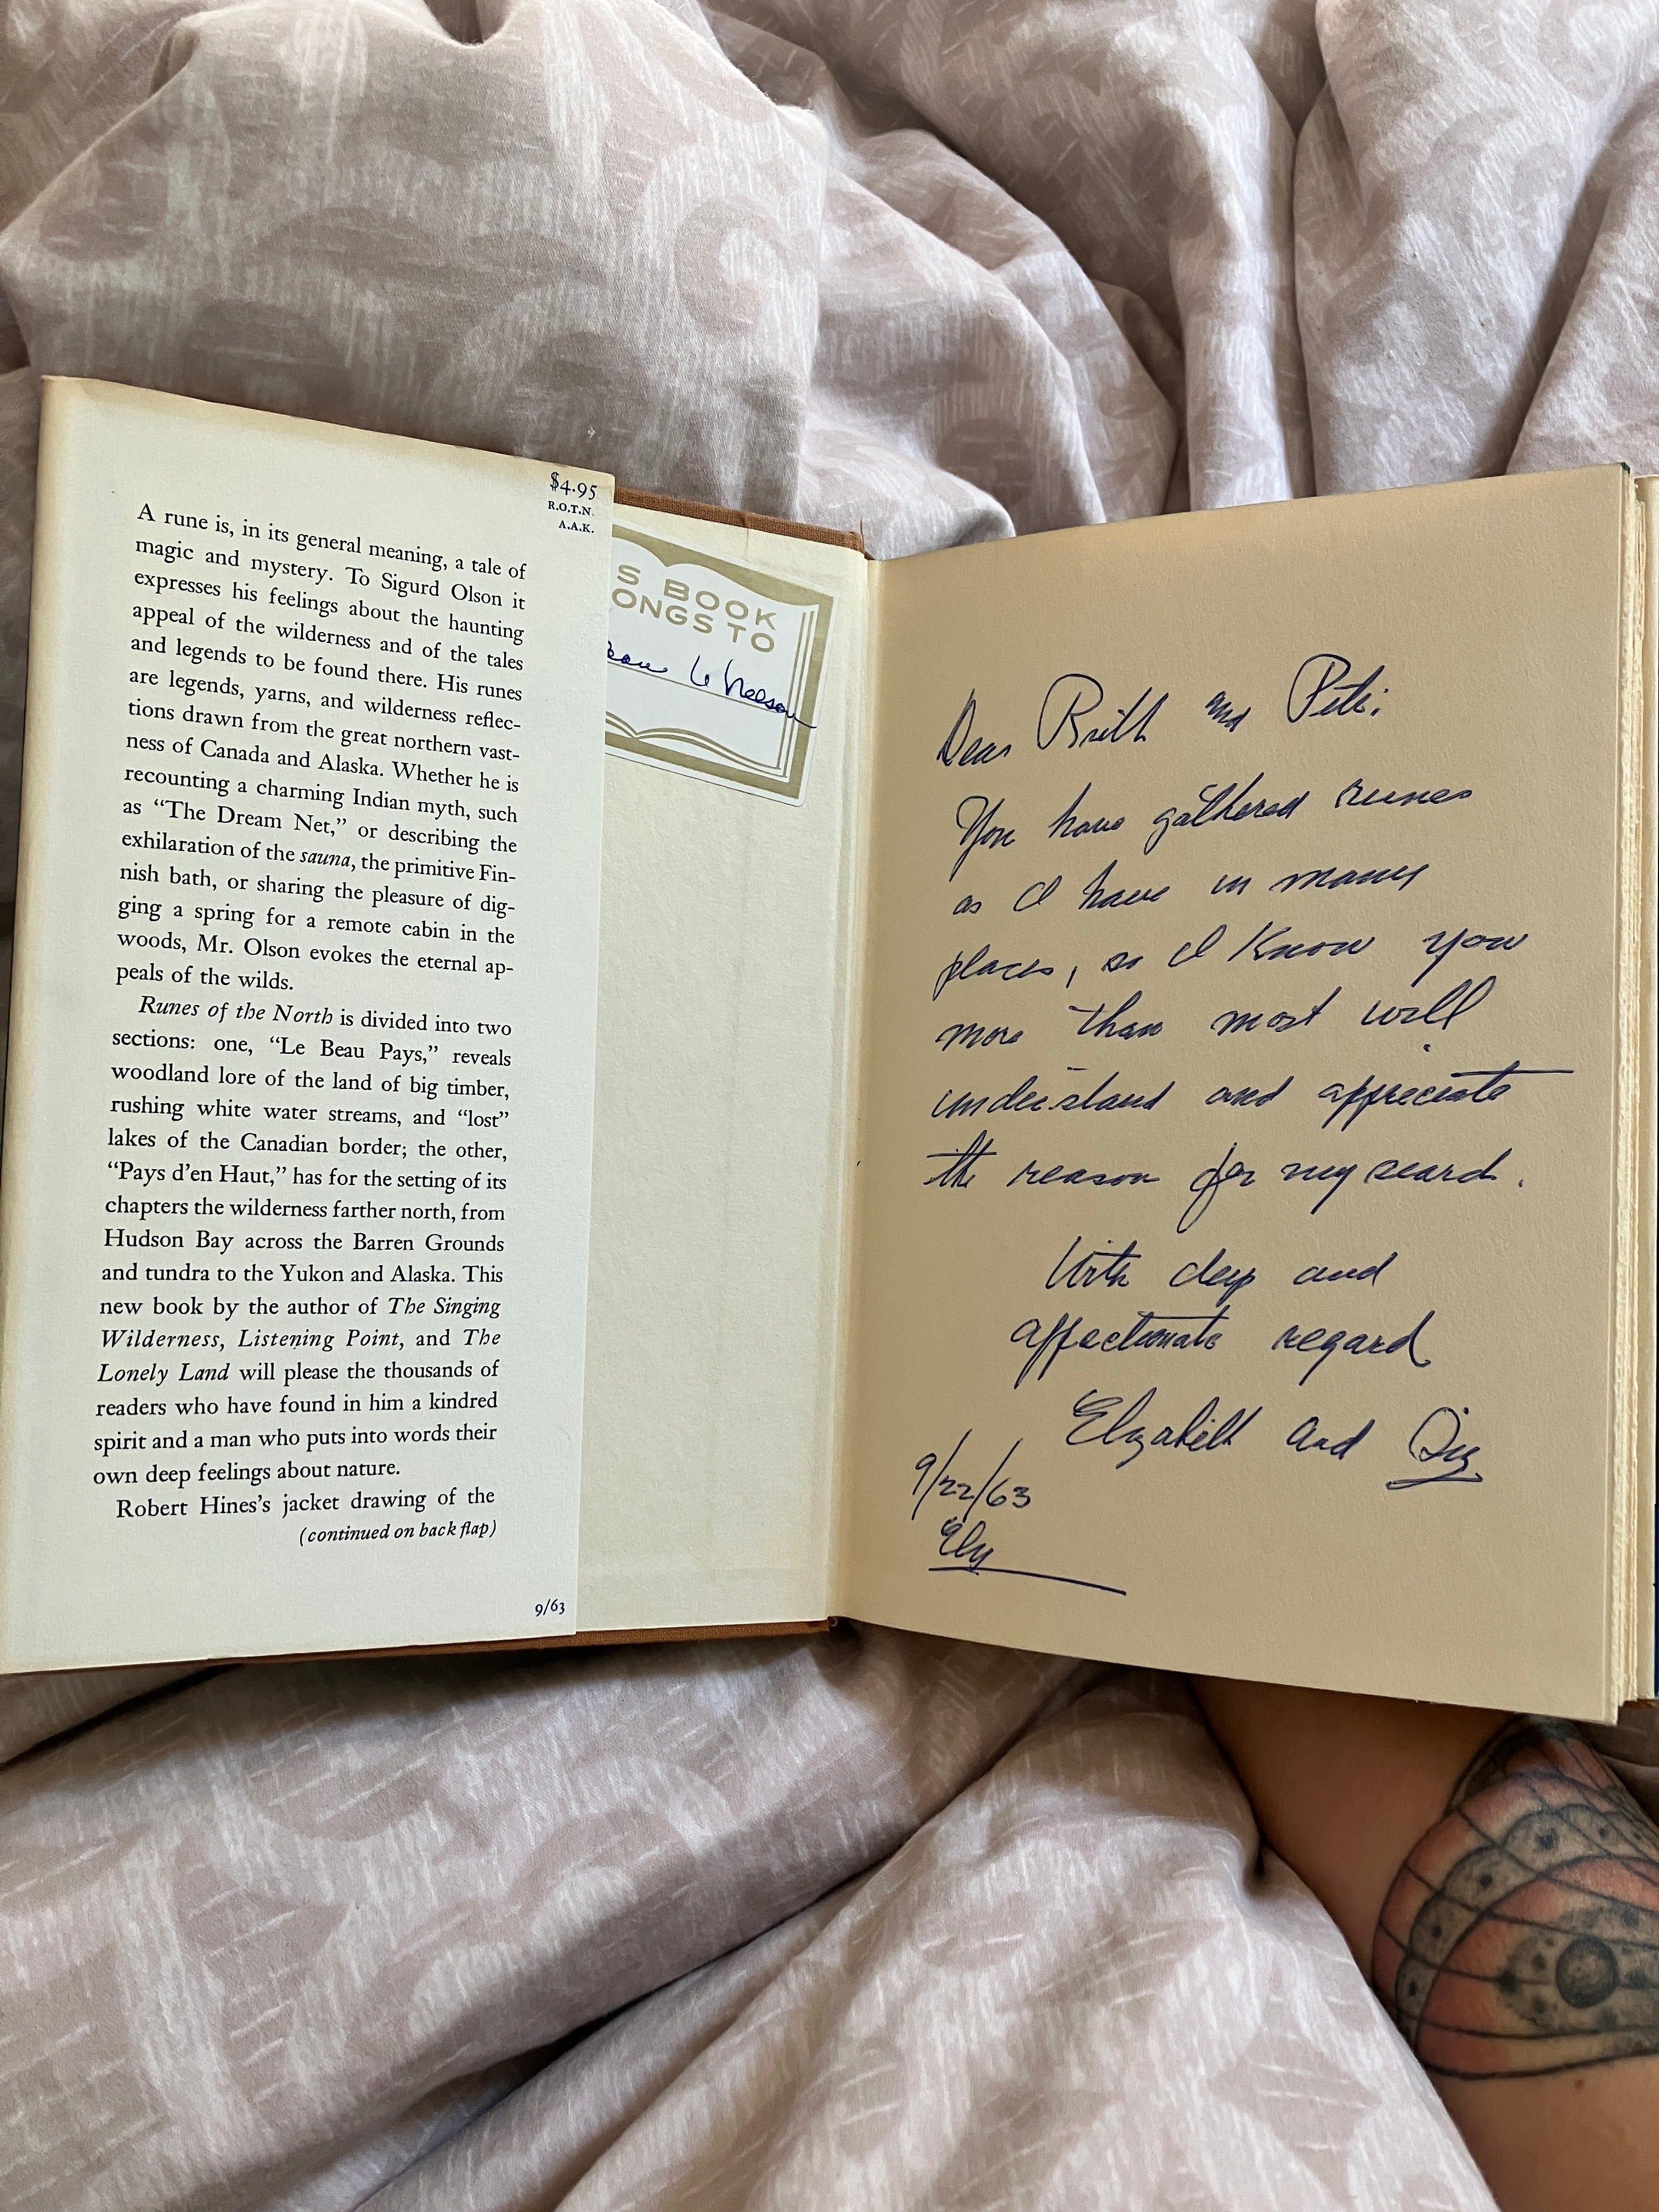 $4.95
R.O.T.N.
A.A.K.
A rune is, in its general meaning, a tale of
magic and mystery. To Sigurd Olson it
expresses his feelings about the haunting
appeal of the wilderness and of the tales
and legends to be found there. His runes
are legends, yarns, and wilderness reflec-
tions drawn from the great northern vast-
ness of Canada and Alaska. Whether he is
recounting a charming Indian myth, such
as “The Dream Net,” or describing the
exhilaration of the sauna, the primitive Fin-
nish bath, or sharing the pleasure of dig-
ging a spring for a remote cabin in the
woods, Mr. Olson evokes the eternal ap-
peals of the wilds.
Runes of the North is divided into two
sections: one, “Le Beau Pays,” reveals
woodland lore of the land of big timber,
rushing white water streams, and “lost”
lakes of the Canadian border; the other,
“Pays d’en Haut,” has for the setting of its
chapters the wilderness farther north, from
Hudson Bay across the Barren Grounds
and tundra to the Yukon and Alaska. This
new book by the author of The Singing
Wilderness, Listening Point, and The
Lonely Land will please the thousands of
readers who have found in him a kindred
spirit and a man who puts into words their
own deep feelings about nature.
Robert Hines’s jacket drawing of the
(continued on back flap)
9/63
S BOOK
ONGS TO
Nelson
Dear and
You have gathered runes
as I have in many
places, so I know you
more than most will
understand and appreciate
the reason for my search.
With deep and
affectionate regard
Elizabeth and Sig
9/22/63
Ely